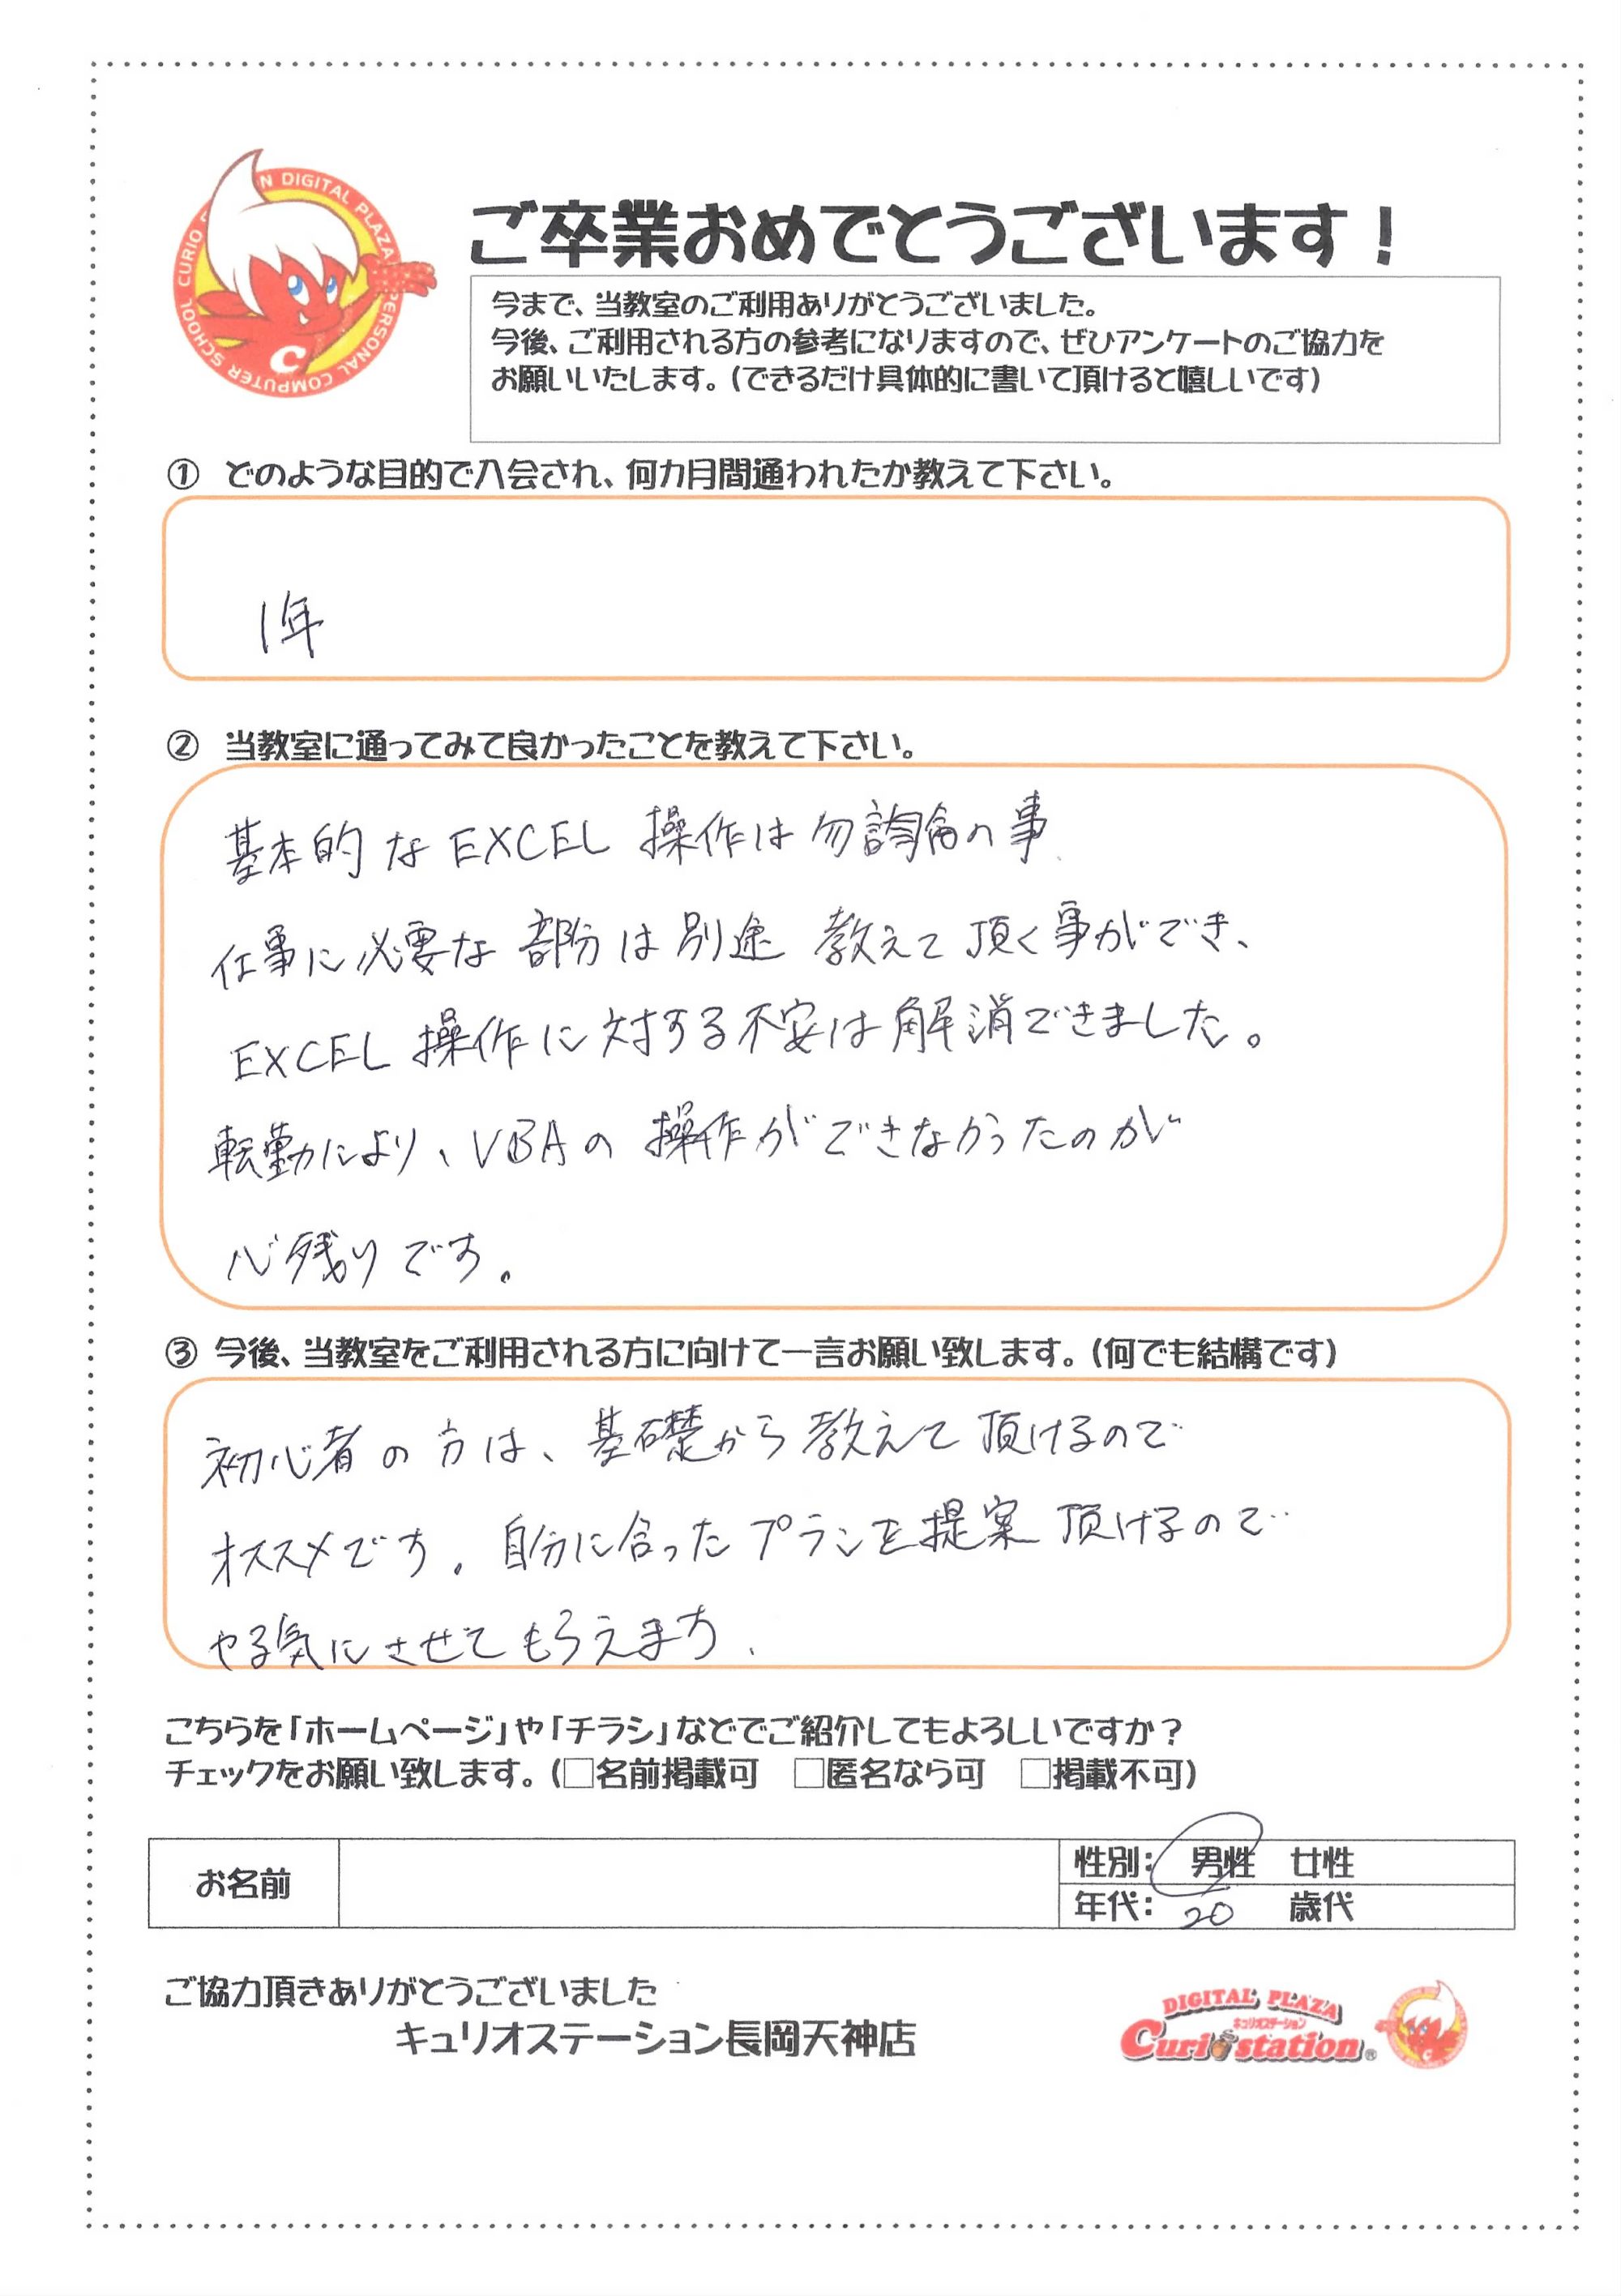 CURIO STATION DIGITAL PLAZA PERSONAL COMPUTER SCHOOL
C
ご卒業おめでとうございます！
今まで、当教室のご利用ありがとうございました。
今後、ご利用される方の参考になりますので、ぜひアンケートのご協力を
お願いいたします。（できるだけ具体的に書いて頂けると嬉しいです）
① どのような目的で入会され、何カ月間通われたか教えて下さい。
1年
② 当教室に通ってみて良かったことを教えて下さい。
基本的なEXCEL操作は勿論の事
仕事に必要な部分は別途教えて頂く事ができ、
EXCEL操作に対する不安は解消できました。
転勤により、VBAの操作ができなかったのが
心残りです。
③ 今後、当教室をご利用される方に向けて一言お願い致します。（何でも結構です）
初心者の方は、基礎から教えて頂けるので
オススメです。自分に合ったプランを提案頂けるので
やる気にさせてもらえます、
こちらを「ホームページ」や「チラシ」などでご紹介してもよろしいですか？
チェックをお願い致します。（□名前掲載可 □匿名なら可 □掲載不可）
お名前
性別： 男性 女性
年代： 20 歳代
ご協力頂きありがとうございました
キュリオステーション長岡天神店
DIGITAL PLAZA
キュリオステーション
Curio station®